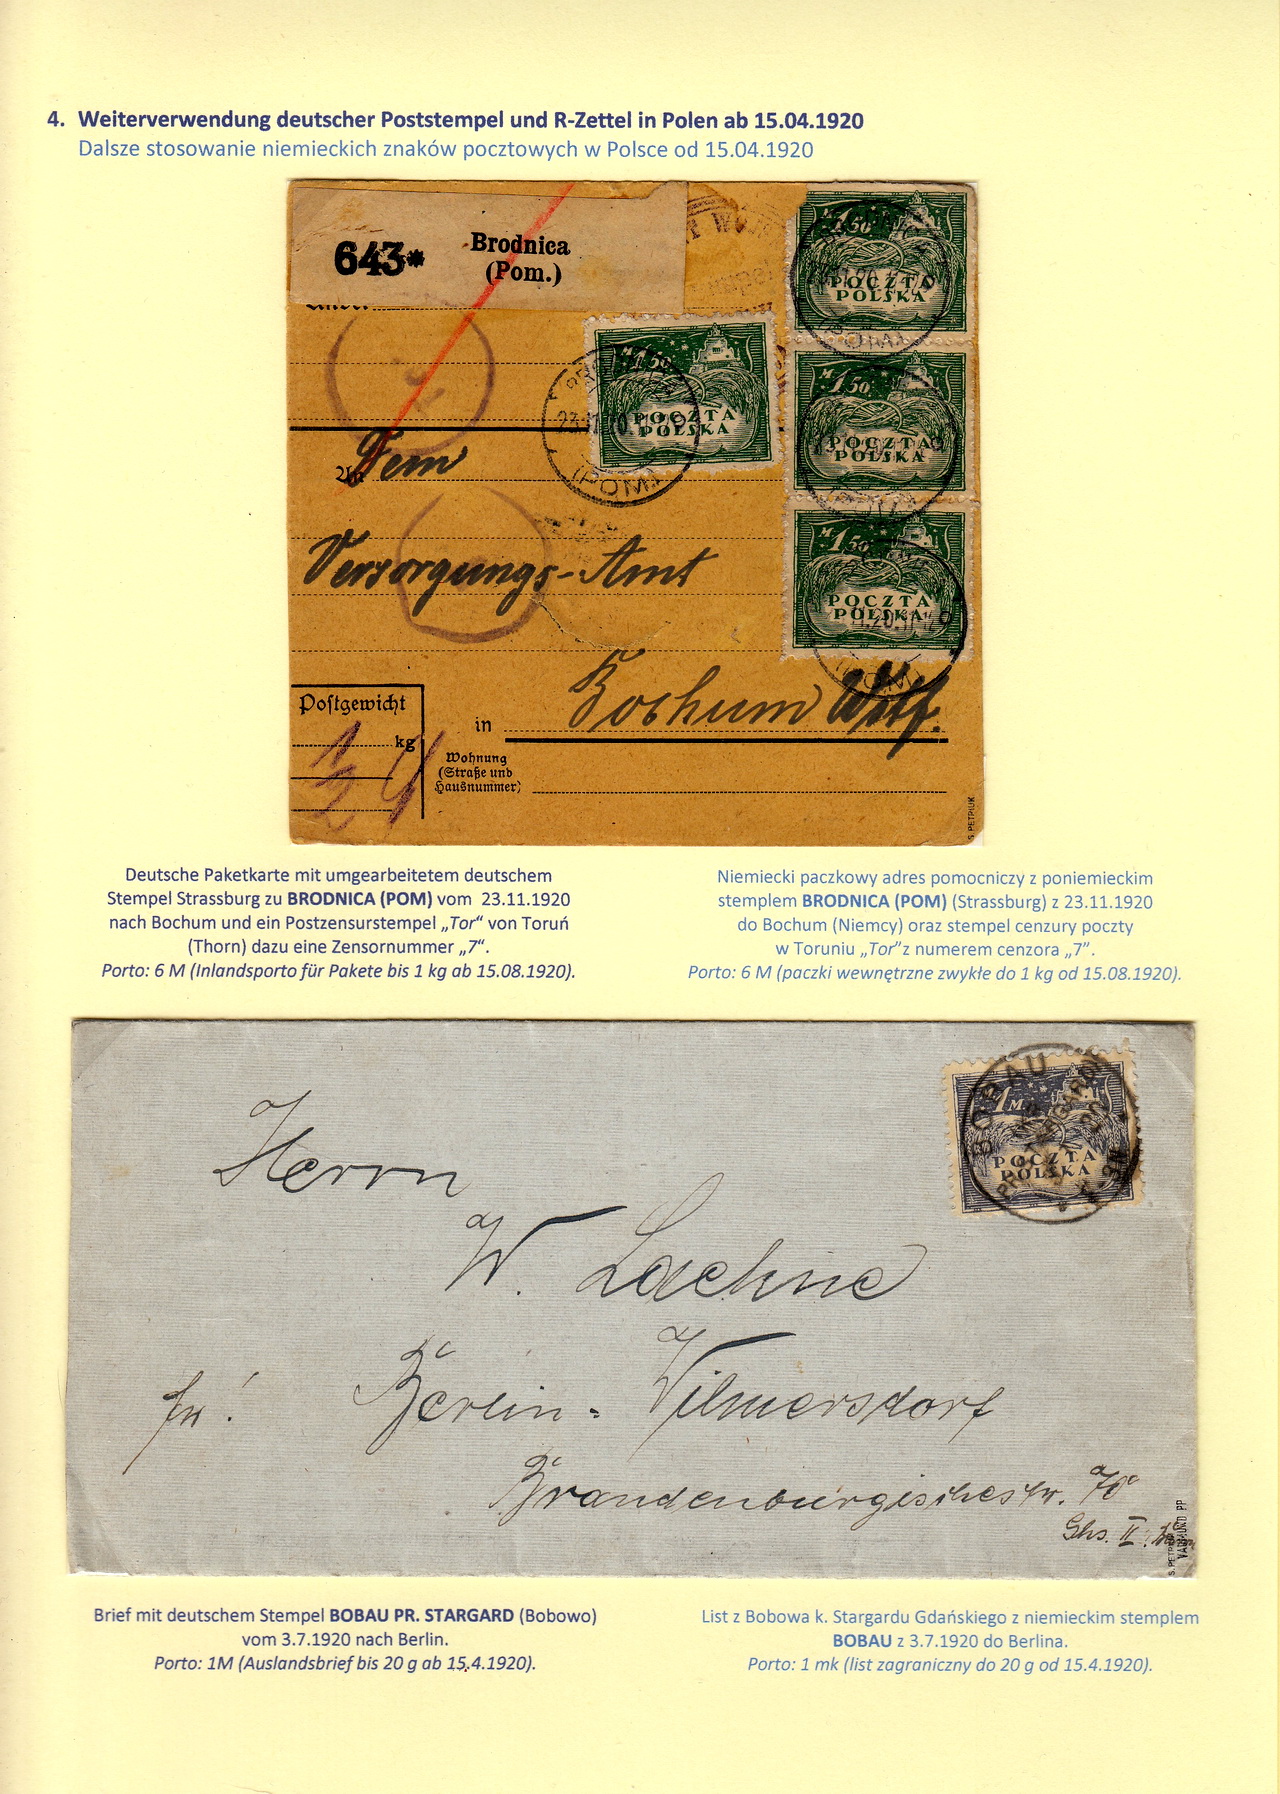 4. Weiterverwendung deutscher Poststempel und R-Zettel in Polen ab 15.04.1920
Dalsze stosowanie niemieckich znaków pocztowych w Polsce od 15.04.1920
643*
Brodnica
(Pom.)
M 1,50
POCZTA
POLSKA
1,50
POCZTA
POLSKA
M 1,50
POCZTA
POLSKA
M 1,50
POCZTA
POLSKA
(POM)
An Dem
Versorgungs-Amt
in Bochum Wstf.
Postgewicht
kg
Wohnung
(Straße und
Hausnummer)
S. PETRIUK
Deutsche Paketkarte mit umgearbeitetem deutschem
Stempel Strassburg zu BRODNICA (POM) vom 23.11.1920
nach Bochum und ein Postzensurstempel „Tor“ von Toruń
(Thorn) dazu eine Zensornummer „7“.
Porto: 6 M (Inlandsporto für Pakete bis 1 kg ab 15.08.1920).
Niemiecki paczkowy adres pomocniczy z poniemieckim
stemplem BRODNICA (POM) (Strassburg) z 23.11.1920
do Bochum (Niemcy) oraz stempel cenzury poczty
w Toruniu „Tor”z numerem cenzora „7”.
Porto: 6 M (paczki wewnętrzne zwykłe do 1 kg od 15.08.1920).
BOBAU
1 M
POCZTA
POLSKA
Herrn
W. Lachne
fr! Berlin-Wilmersdorf
Brandenburgischestr. 70
Ghs. II
S. PETRIUK
Brief mit deutschem Stempel BOBAU PR. STARGARD (Bobowo)
vom 3.7.1920 nach Berlin.
Porto: 1M (Auslandsbrief bis 20 g ab 15.4.1920).
List z Bobowa k. Stargardu Gdańskiego z niemieckim stemplem
BOBAU z 3.7.1920 do Berlina.
Porto: 1 mk (list zagraniczny do 20 g od 15.4.1920).